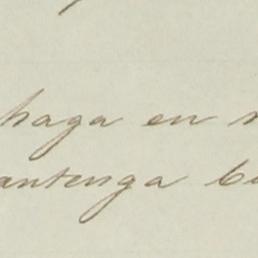 haga en
antenga